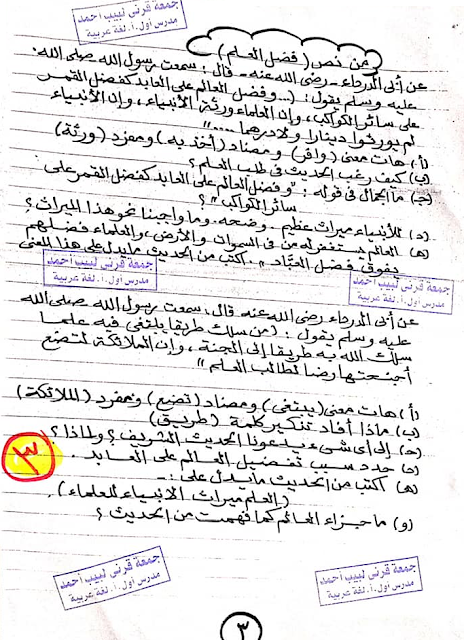 جمعة قرني لبيب أحمد
مدرس أول أ. لغة عربية
من نص (فضل العلم)
عن أبى الدرداء - رضى الله عنه - قال: سمعت رسول الله صلى الله
عليه وسلم يقول: (... وفضل العالم على العابد كفضل القمر
على سائر الكواكب، وإن العلماء ورثة الأنبياء، وإن الأنبياء
لم يورثوا دينارا ولا درهما ....."
(أ) هات معنى (وافر) ومضاد (أخذ به) ومفرد (ورثة)
(ب) كيف رغب الحديث فى طلب العلم؟
(جـ) ما الجمال فى قوله: "وفضل العالم على العابد كفضل القمر على
سائر الكواكب"؟
(د) للأنبياء ميراث عظيم. وضحه. وما واجبنا نحو هذا الميراث؟
(هـ) العالم يستغفر له من فى السموات والأرض، والعلماء فضلهم
يفوق فضل العبَّاد". اكتب من الحديث ما يدل على هذا المعنى
جمعة قرني لبيب أحمد
مدرس أول أ. لغة عربية
جمعة قرني لبيب أحمد
مدرس أول أ. لغة عربية
عن أبى الدرداء رضى الله عنه قال، سمعت رسول الله صلى الله
عليه وسلم يقول: (من سلك طريقا يبتغى فيه علما
سلك الله به طريقا إلى الجنة، وإن الملائكة لتضع
أجنحتها رضا لطالب العلم"
(أ) هات معنى (يبتغى) ومضاد (تضع) ومفرد (الملائكة)
(ب) ماذا أفاد تنكير كلمة (طريق)
(جـ) إلى أى شىء يدعونا الحديث الشريف؟ ولماذا؟
(د) حدد سبب تفضيل العالم على العابد.
(هـ) اكتب من الحديث ما يدل على:-
(العلم ميراث الأنبياء للعلماء).
(و) ما جزاء العالم كما فهمت من الحديث؟
٣
جمعة قرني لبيب أحمد
مدرس أول أ. لغة عربية
جمعة قرني لبيب أحمد
مدرس أول أ. لغة عربية
٣